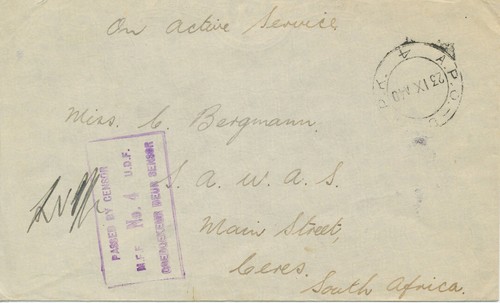 On Active Service
A.P.O.
23 IX 40
4
Miss. C. Bergmann.
S. A. W. A. S.
Main Street,
Ceres.
South Africa.
PASSED BY CENSOR
No. 4 U.D.F.
DEUR SENSOR